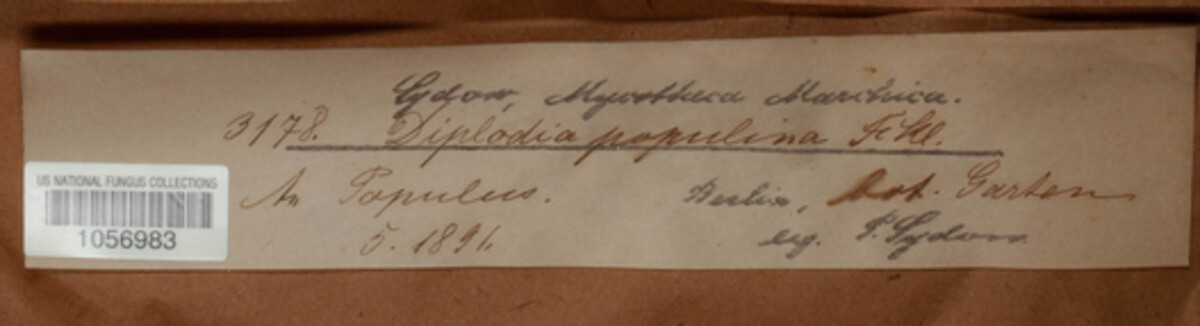 Sydow, Mycotheca Marchica.
3178. Diplodia populina Fckl.
US NATIONAL FUNGUS COLLECTIONS
1056983
An Populus. Berlin, bot. Garten
5. 1891. leg. P. Sydow